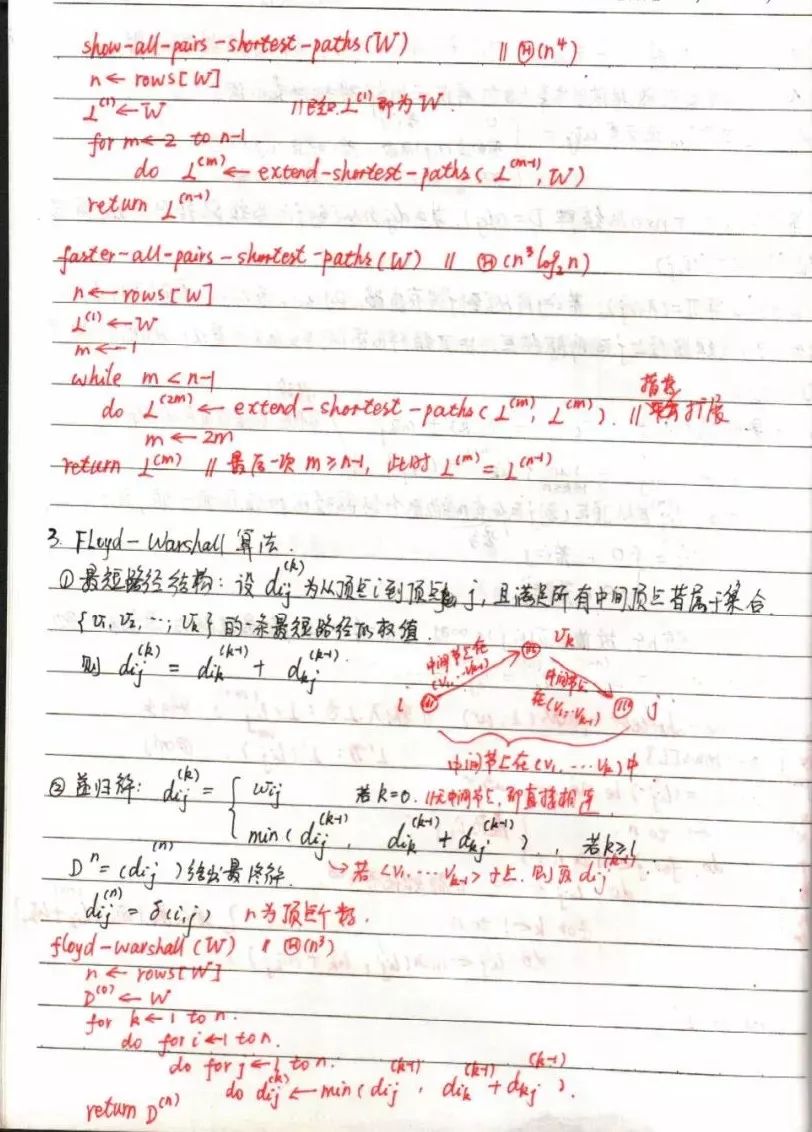 show-all-pairs-shortest-paths(W) // Θ(n⁴)
n ← rows[W]
L⁽¹⁾ ← W // 已经L⁽¹⁾即为W.
for m ← 2 to n-1
do L⁽ᵐ⁾ ← extend-shortest-paths(L⁽ᵐ⁻¹⁾, W)
return L⁽ⁿ⁻¹⁾
faster-all-pairs-shortest-paths(W) // Θ(n³log₂n)
n ← rows[W]
L⁽¹⁾ ← W
m ← 1
while m < n-1
do L⁽²ᵐ⁾ ← extend-shortest-paths(L⁽ᵐ⁾, L⁽ᵐ⁾). // 指数扩展
m ← 2m
return L⁽ᵐ⁾ // 最后一次 m ≥ n-1, 此时 L⁽ᵐ⁾ = L⁽ⁿ⁻¹⁾
3. FLoyd-Warshall 算法.
① 最短路径结构: 设 dij⁽ᵏ⁾ 为从顶点i到顶点 j, 且满足所有中间顶点皆属于集合
{v₁, v₂, …, vₖ} 的一条最短路径的权值.
则 dij⁽ᵏ⁾ = dik⁽ᵏ⁻¹⁾ + dkj⁽ᵏ⁻¹⁾.
vₖ
中间节点在
(v₁…vₖ₋₁)
中间节点
在(v₁…vₖ₋₁)
i
j
中间节点在(v₁, …vₖ)中.
② 递归解: dij⁽ᵏ⁾ = { wij 若k=0. //无中间节点, 即直接相连
min(dij⁽ᵏ⁻¹⁾, dik⁽ᵏ⁻¹⁾ + dkj⁽ᵏ⁻¹⁾), 若k≥1
Dⁿ = (dij⁽ⁿ⁾) 给出最终解. → 若<v₁…vₖ₋₁> 则取 dij⁽ᵏ⁻¹⁾
dij⁽ⁿ⁾ = δ(i,j) n为顶点个数.
floyd-warshall(W) // Θ(n³)
n ← rows[W]
D⁽⁰⁾ ← W
for k ← 1 to n.
do for i ← 1 to n.
do for j ← 1 to n.
do dij⁽ᵏ⁾ ← min(dij⁽ᵏ⁻¹⁾, dik⁽ᵏ⁻¹⁾ + dkj⁽ᵏ⁻¹⁾).
return D⁽ⁿ⁾